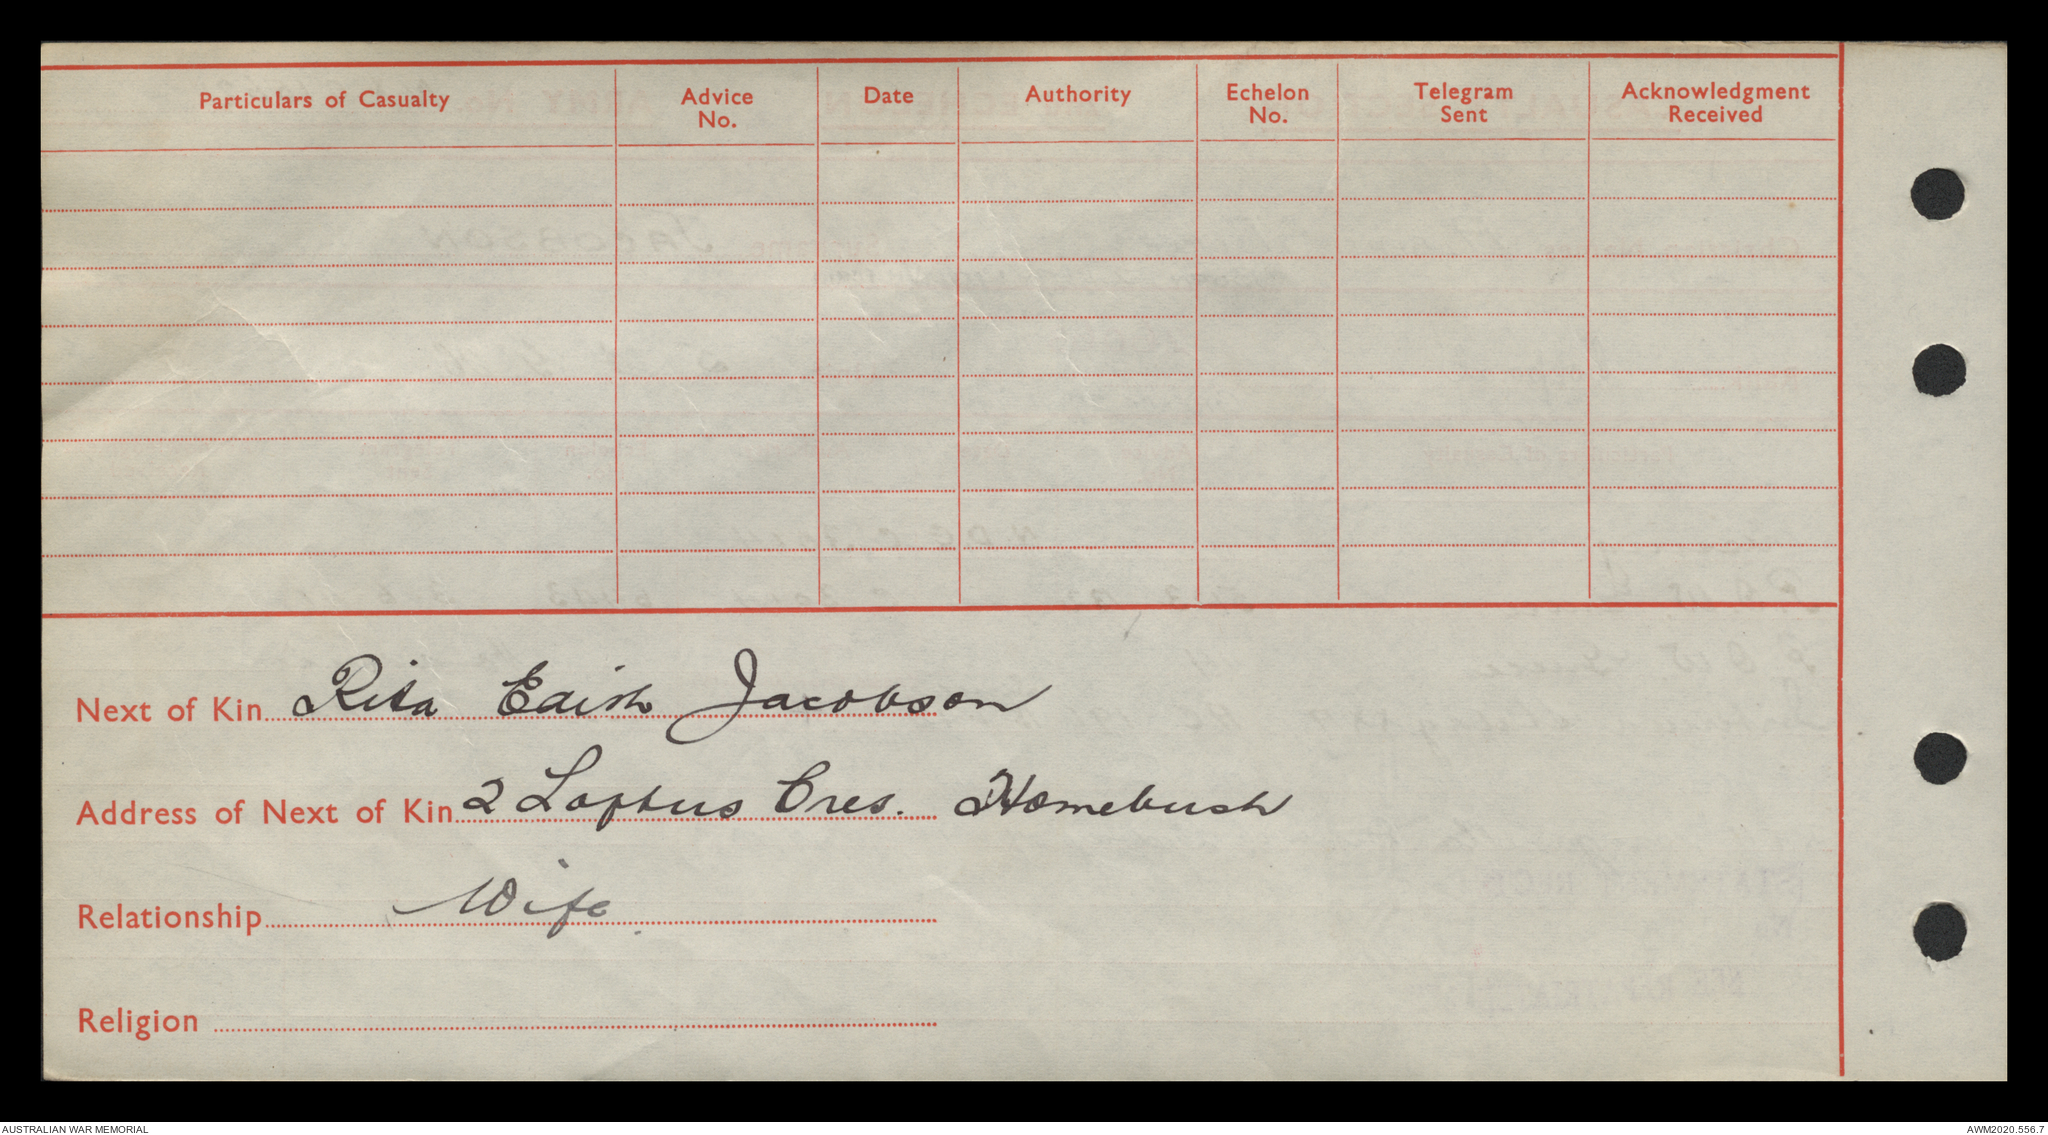 Particulars of Casualty Advice No. Date Authority Echelon No. Telegram Sent Acknowledgment Received
Next of Kin Rita Edith Jacobson
Address of Next of Kin 2 Loftus Cres. Homebush
Relationship Wife
Religion
AUSTRALIAN WAR MEMORIAL AWM2020.556.7